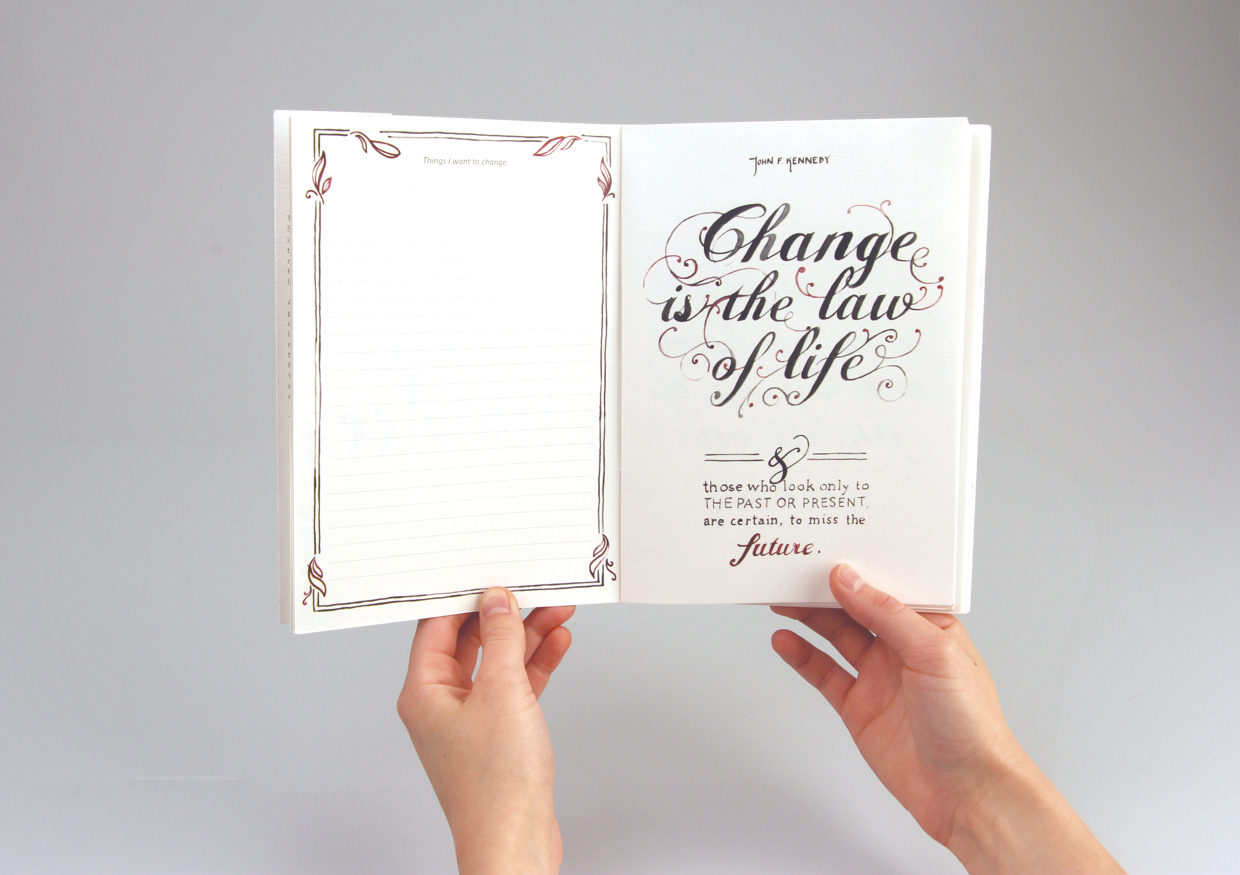 Things I want to change:
JOHN F. KENNEDY
Change
is the law
of life
&
those who look only to
THE PAST OR PRESENT,
are certain, to miss the
future.